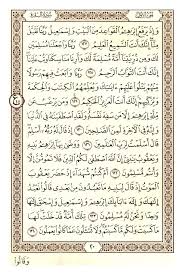 وَإِذْ يَرْفَعُ إِبْرَٰهِۦمُ ٱلْقَوَاعِدَ مِنَ ٱلْبَيْتِ وَإِسْمَٰعِيلُ رَبَّنَا تَقَبَّلْ
مِنَّآ إِنَّكَ أَنتَ ٱلسَّمِيعُ ٱلْعَلِيمُ ١٢٧ رَبَّنَا وَٱجْعَلْنَا مُسْلِمَيْنِ
لَكَ وَمِن ذُرِّيَّتِنَآ أُمَّةً مُّسْلِمَةً لَّكَ وَأَرِنَا مَنَاسِكَنَا وَتُبْ عَلَيْنَآ
إِنَّكَ أَنتَ ٱلتَّوَّابُ ٱلرَّحِيمُ ١٢٨ رَبَّنَا وَٱبْعَثْ فِيهِمْ رَسُولًا مِّنْهُمْ
يَتْلُوا۟ عَلَيْهِمْ ءَايَٰتِكَ وَيُعَلِّمُهُمُ ٱلْكِتَٰبَ وَٱلْحِكْمَةَ
وَيُزَكِّيهِمْ إِنَّكَ أَنتَ ٱلْعَزِيزُ ٱلْحَكِيمُ ١٢٩ وَمَن يَرْغَبُ عَن
مِّلَّةِ إِبْرَٰهِۦمَ إِلَّا مَن سَفِهَ نَفْسَهُۥ وَلَقَدِ ٱصْطَفَيْنَٰهُ فِى ٱلدُّنْيَا
وَإِنَّهُۥ فِى ٱلْءَاخِرَةِ لَمِنَ ٱلصَّٰلِحِينَ ١٣٠ إِذْ قَالَ لَهُۥ رَبُّهُۥٓ أَسْلِمْ
قَالَ أَسْلَمْتُ لِرَبِّ ٱلْعَٰلَمِينَ ١٣١ وَوَصَّىٰ بِهَآ إِبْرَٰهِۦمُ بَنِيهِ
وَيَعْقُوبُ يَٰبَنِىَّ إِنَّ ٱللَّهَ ٱصْطَفَىٰ لَكُمُ ٱلدِّينَ فَلَا تَمُوتُنَّ
إِلَّا وَأَنتُم مُّسْلِمُونَ ١٣٢ أَمْ كُنتُمْ شُهَدَآءَ إِذْ حَضَرَ
يَعْقُوبَ ٱلْمَوْتُ إِذْ قَالَ لِبَنِيهِ مَا تَعْبُدُونَ مِنۢ بَعْدِى قَالُوا۟ نَعْبُدُ
إِلَٰهَكَ وَإِلَٰهَ ءَابَآئِكَ إِبْرَٰهِۦمَ وَإِسْمَٰعِيلَ وَإِسْحَٰقَ
إِلَٰهًا وَٰحِدًا وَنَحْنُ لَهُۥ مُسْلِمُونَ ١٣٣ تِلْكَ أُمَّةٌ قَدْ خَلَتْ
لَهَا مَا كَسَبَتْ وَلَكُم مَّا كَسَبْتُمْ وَلَا تُسْـَٔلُونَ عَمَّا كَانُوا۟ يَعْمَلُونَ ١٣٤
٢٠
وَقَالُوا۟